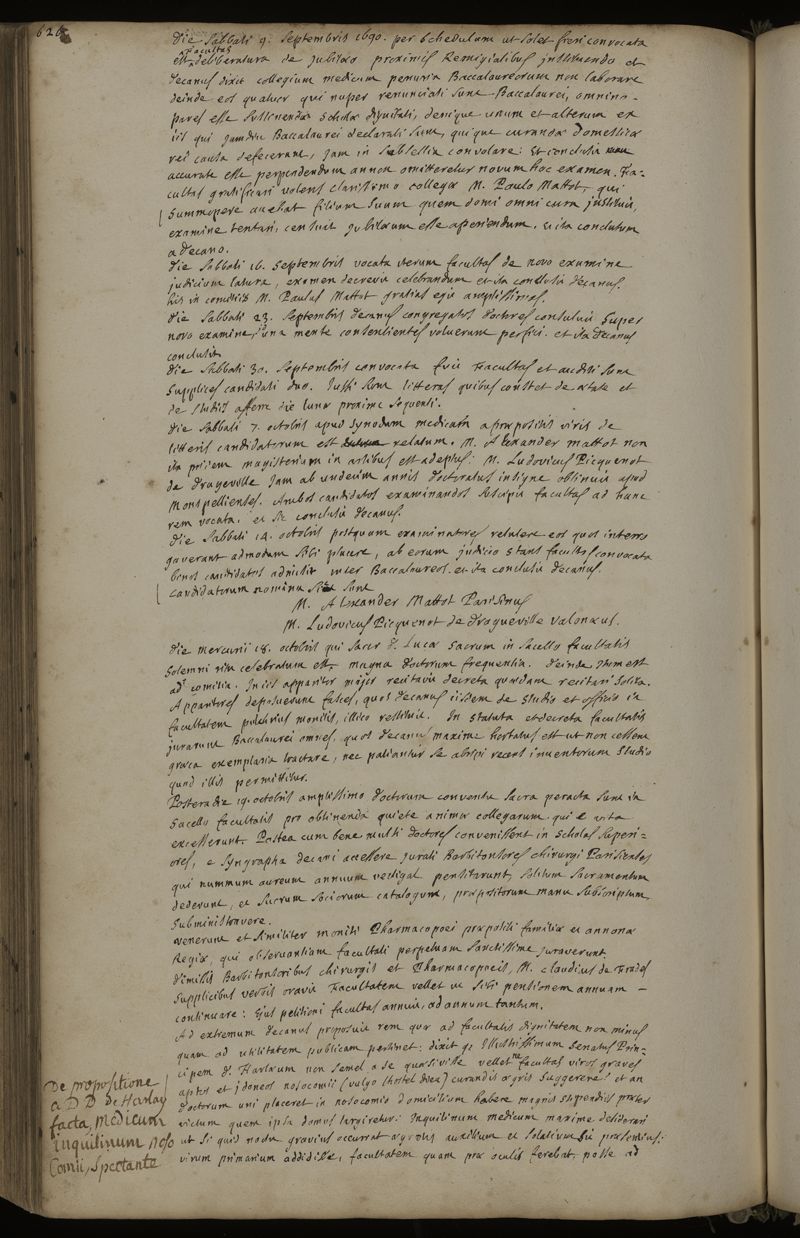 626
Die Sabbati 9. Septembris 1690. per schedulam ut solet fieri convocata
est facultas deliberatura de jubilæo proximis Remigialibus instituendo et
Decanus dixit collegium medicum penuria Baccalaureorum non laborare
deinde eos quatuor qui nuper renunciati sunt Baccalaurei, omnino
pares esse sustinendæ scholæ dignitati, denique unum et alterum ex
iis qui jamdiu Baccalaurei declarati sunt, quique curandæ domesticæ
rei causa defecerant, jam in subsellia convolare: Et conclusit
accurate esse perpendendum annon omitteretur novum hoc examen. Fa-
cultas gratificari volens clarissimo collegæ M. Paulo Mattot, qui
summopere avebat filium suum quem domi omni cura instituit,
examine tentari, censuit jubilæum esse aperiendum. et ita conclusum
a Decano.
Die Sabbati 16. Septembris vocata iterum facultas de novo examine
judicium latura, examen decrevit celebrandum et ita conclusit Decanus.
his in comitiis M. Paulus Mattot gratias egit amplissimas.
Die Sabbati 23. Septembris Decanus congregatos Doctores consuluit super
novo examine, una mente consentientes voluerunt perfici. et ita Decanus
conclusit.
Die Sabbati 30. Septembris convocata fuit Facultas et auditi sunt
supplices candidati duo. Jussi sunt litteras quibus constet de ætate et
de studiis afferre die lunæ proxime sequenti.
Die Sabbati 7. octobris apud synodum medicam a præpositis viris de
litteris candidatorum est relatum. M. Alexander Mattot non
ita pridem magisterium in artibus est adeptus: M. Ludovicus Picquenot
de Drogeville jam ab undecim annis doctoratus insigne obtinuit apud
Monspellienses. Ambos candidatos examinandos suscipit facultas ad hanc
rem vocata. et sic conclusit Decanus.
Die Sabbati 14. octobris postquam examinatores retulere eos quos interro
gaverant admodum sibi placere, ab eorum judicio stans facultas convocata
binos candidatos admisit inter Baccalaureos. et ita conclusit Decanus.
Candidatorum nomina sunt
M. Alexander Mattot Parisinus
M. Ludovicus Picquenot de Drogueville Valonæus.
Die Mercurii 18. octobris qui sacer D. Lucæ sacrum in sacello facultatis
solemni ritu celebratum est, magna doctorum frequentia. Deinde itum est
ad comitia. In iis apparitor major recitavit decreta quædam recitari solita.
Apparitores deposuerunt fasces, quos Decanus iisdem de studio et officio in
facultatem pulchrius monitis, illico restituit. In statuta et decreta facultatis
jurarunt Baccalaurei omnes, quos Decanus maxime hortatus est ut non cessent
græca exemplaria tractare, nec patiantur se abripi recens inventorum studio
quod illis permittitur.
Postera die 19. octobris amplissimo doctorum conventu sacra peracta sunt in
sacello facultatis pro obtinenda quiete animæ collegarum qui e vita
excesserunt. Postea cum bene multi doctores convenissent in scholas superi-
ores, e syngrapha decani accessere jurati Barbitonsores chirurgi Parisienses
qui nummum aureum annuum vectigal pensitarunt, solitum sacramentum
dederunt, et suorum sociorum catalogum, præpositorum manu subscriptum,
subministravere.
venerunt et similiter moniti Pharmacopoei præpositi familiæ et annonæ
Regiæ, qui observantiam facultati perpetuam sanctissime juraverunt.
Dimissis Barbitonsoribus chirurgis et Pharmacopoeis, M. Claudius de Frades
supplicibus verbis oravit Facultatem vellet ut sibi pensionem annuam -
continuare: Ejus petitioni facultas annuit, ad annum tantum.
Ad extremum Decanus proposuit rem quæ ad facultatis dignitatem non minus
quam ad utilitatem publicam pertinet: dixit ge Illustrissimum senatus Prin-
cipem D. Harlæum non semel a se quæsivisse velletne facultas viros graves
aptos et idoneos nosocomii (vulgo lhostel Dieu) curandis ægris suggerere? et an
doctorum uni placeret in nosocomio domicilium habere magnis stipendiis præter
victum quem ipsa domus largiretur: Inquilinum medicum maxime desiderari
ut si quid nocte gravius occurrat ægrotis auxilium et solatium sit præsentius:
virum primarium addidisse, facultatem quam præ oculis ferebat, posse ad
De propositione
a D D de Harlay
facta, medicum
inquilinum noso
Comii, Spectante